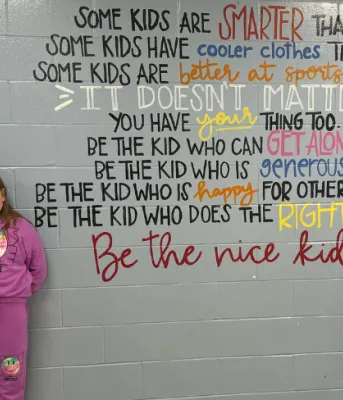 SOME KIDS ARE SMARTER THA
SOME KIDS HAVE cooler clothes T
SOME KIDS ARE better at sports
IT DOESN'T MATT
YOU HAVE your THING TOO.
BE THE KID WHO CAN GET ALON
BE THE KID WHO IS generous
BE THE KID WHO IS happy FOR OTHER
BE THE KID WHO DOES THE RIGHT
Be the nice kid